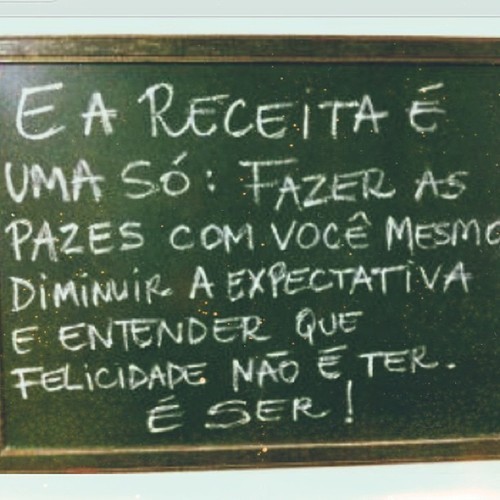 E A RECEITA É
UMA SÓ: FAZER AS
PAZES COM VOCÊ MESMO
DIMINUIR A EXPECTATIVA
E ENTENDER QUE
FELICIDADE NÃO É TER.
É SER!